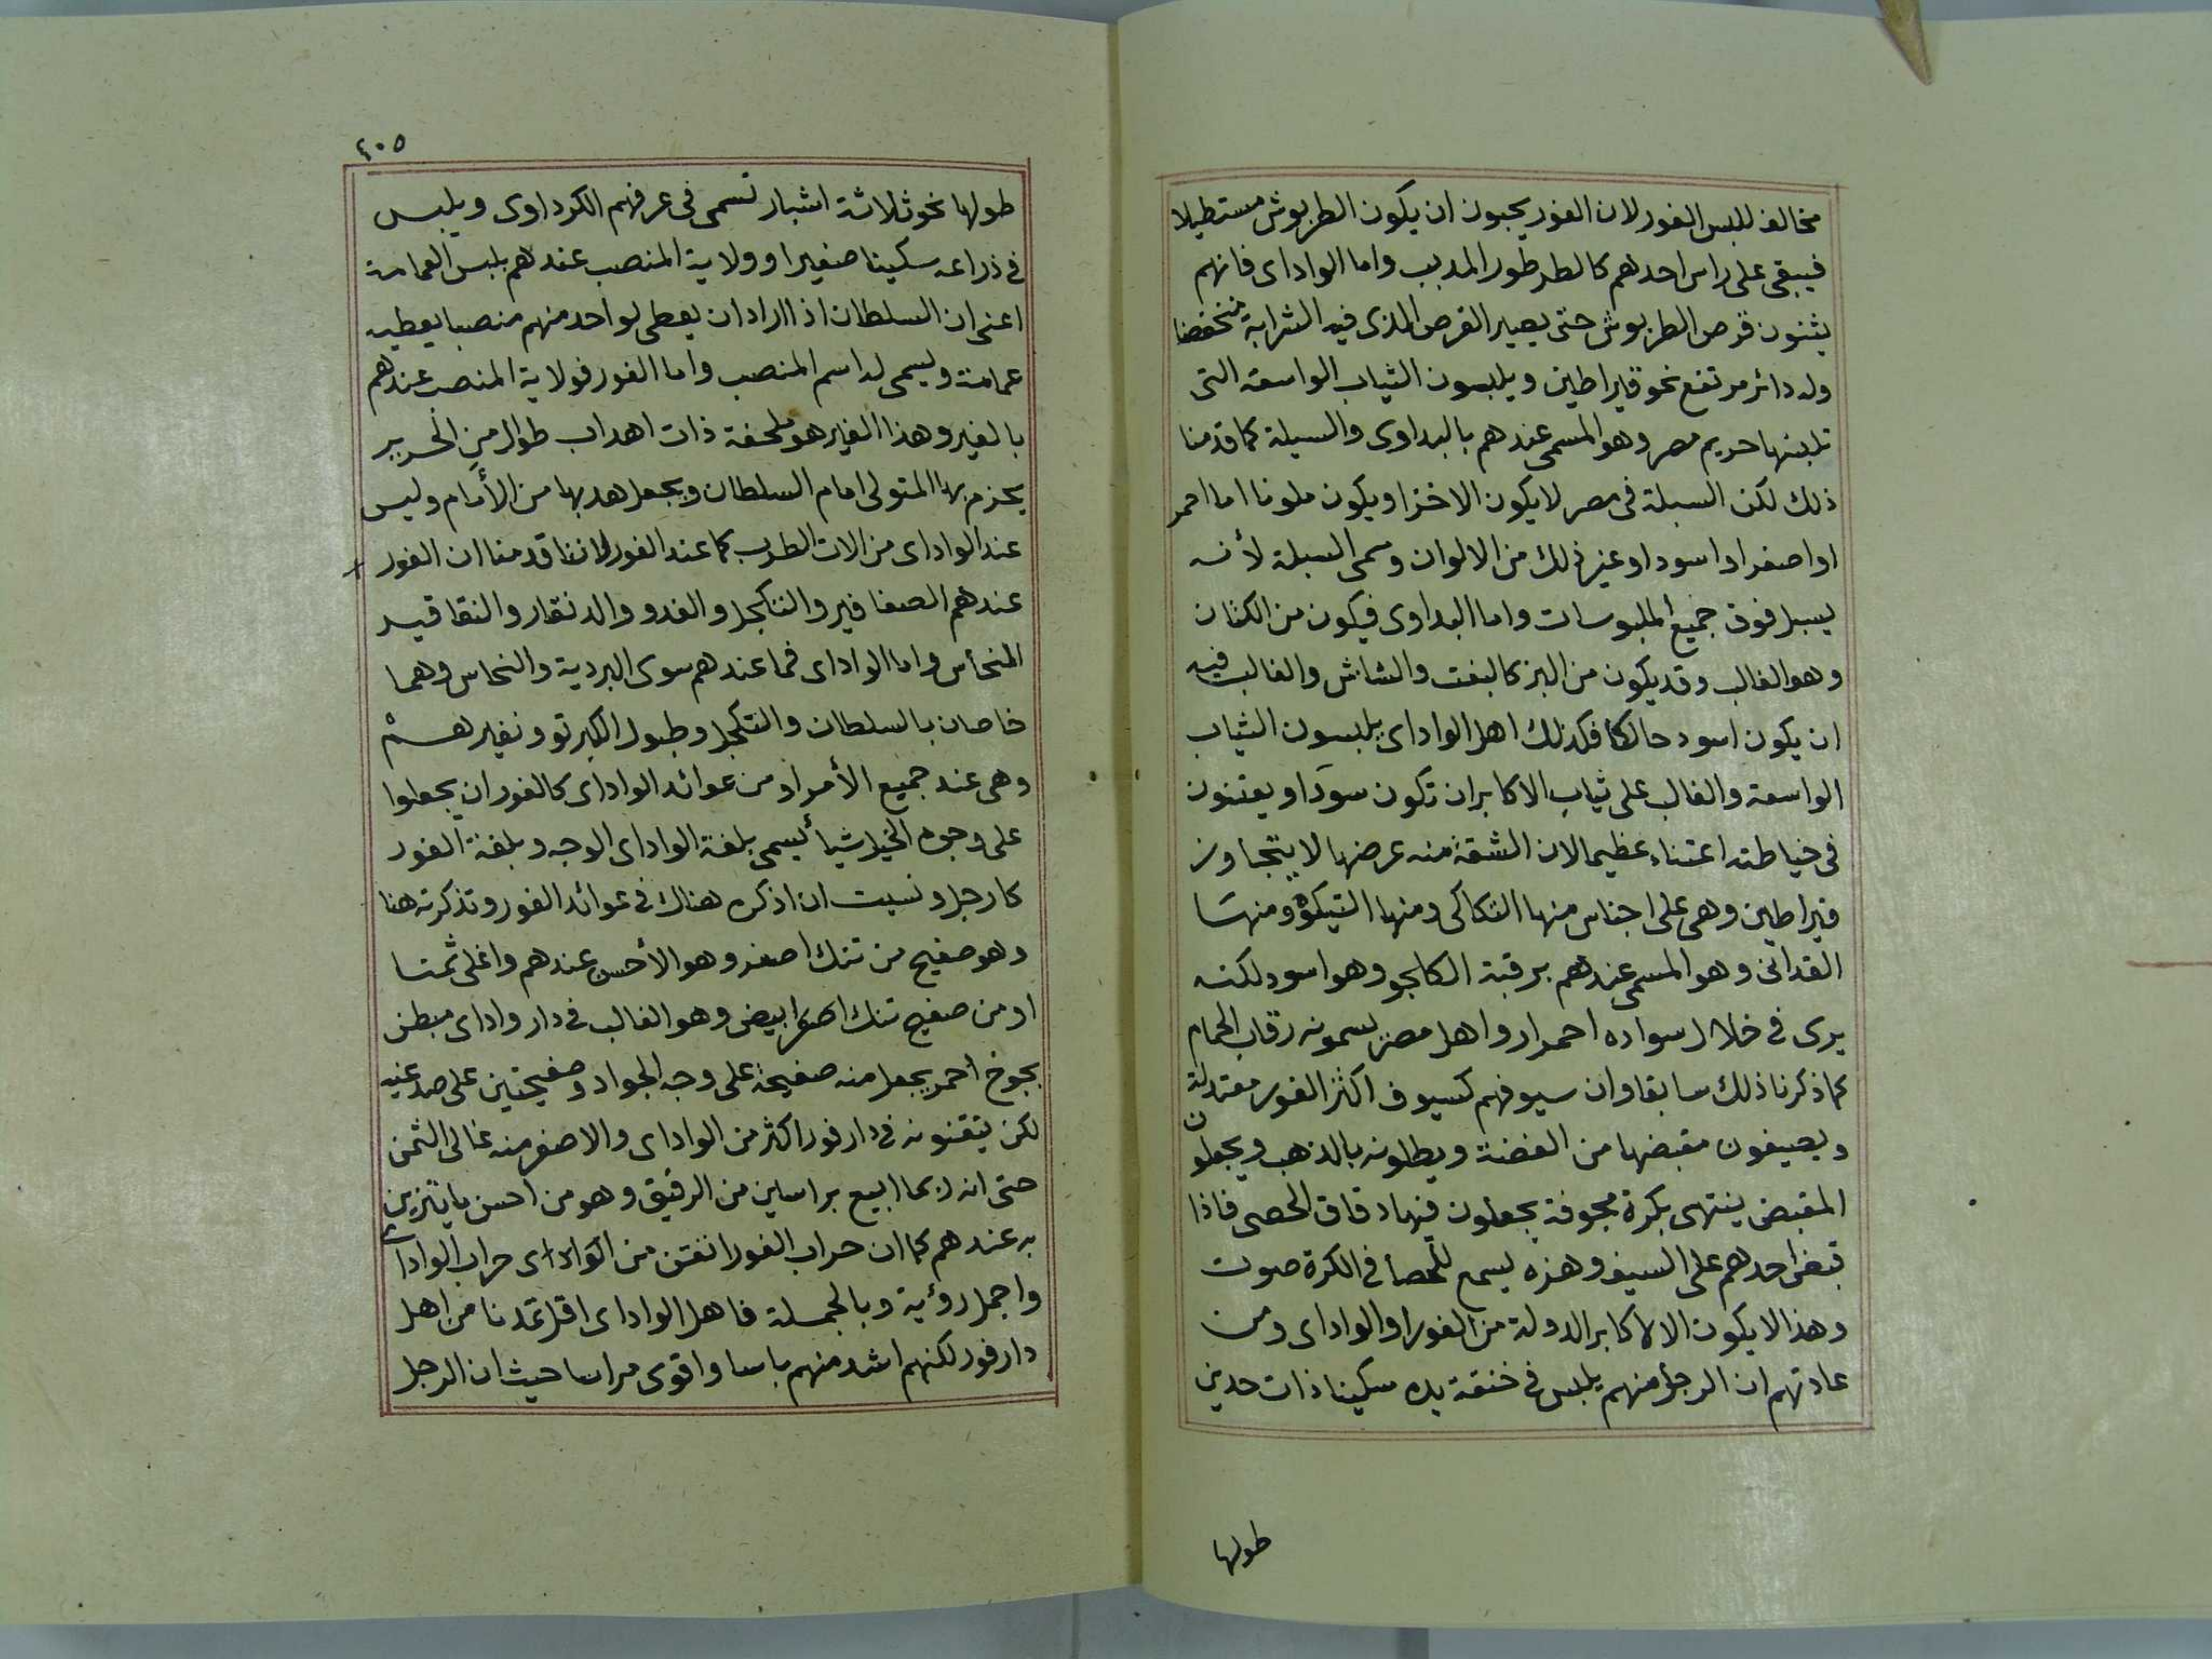 مخالف للبس الفور لان الفور يحبون ان يكون الطربوش مستطيلا
فيبقى على راس احدهم كالطرطور المدبب واما الواداى فانهم
يثنون قرص الطربوش حتى يصير القرص الذى فيه الشرابة منخفضا
وله دائر مرتفع نحو قيراطين ويلبسون الثياب الواسعة التى
تلبسها حريم مصر وهو المسمى عندهم بالبداوى والسبلة كما قدمنا
ذلك لكن السبلة فى مصر لا يكون الا خزا ويكون ملونا اما احمر
او اصفر او اسود او غير ذلك من الالوان وسمى السبلة لأنه
يسبل فوق جميع الملبوسات واما البداوى فيكون من الكتان
وهو الغالب وقد يكون من البز كالبفت والشاش والغالب فيه
ان يكون اسود حالكا فكذلك اهل الواداى يلبسون الثياب
الواسعة والغالب على ثياب الاكابر ان تكون سودا ويعتنون
فى خياطته اعتناء عظيما لان الشقة منه عرضها لا يتجاوز
قيراطين وهى على اجناس منها التكاكى ومنها التيكو ومنها
القدانى وهو المسمى عندهم برقبة الكالجو وهو اسود لكنه
يرى فى خلال سواده احمرار واهل مصر يسمونه رقاب الحمام
كما ذكرنا ذلك سابقا وان سيوفهم كسيوف اكثر الفور معتدلة
ويصيغون مقبضها من الفضة ويطلونه بالذهب ويجعلون
المقبض ينتهى بكرة مجوفة يجعلون فيها دقاق الحصى فاذا
قبض احدهم على السيف وهزه يسمع للحصا فى الكرة صوت
وهذا لا يكون الا لاكابر الدولة من الفور او الواداى ومن
عادتهم ان الرجل منهم يلبس فى خنقة يده سكينا ذات حدين
طولها
٤٠٥
طولها نحو ثلاثة اشبار تسمى فى عرفهم الكرداوى ويلبس
فى ذراعه سكينا صغيرا وولاية المنصب عندهم بلبس العمامة
اعنى ان السلطان اذا اراد ان يعطى لواحد منهم منصبا يعطيه
عمامة ويسمى له اسم المنصب واما الفور فولاية المنصب عندهم
بالغير وهذا الغير هو ملحفة ذات اهداب طوال من الحرير
يحزم بها المتولى امام السلطان ويجعل هدبها من الأمام وليس
عند الواداى من الات الطرب كما عند الفور لاننا قدمنا ان الفور
عندهم الصفافير والتنكجل والغدو والدنقار والنقاقير
النحاس واما الواداى فما عندهم سوى البردية والنحاس وهما
خاصان بالسلطان والتنكجل وطبول الكبرتو ونفيرهم
وهى عند جميع الأمراء ومن عوائد الواداى كالفور ان يجعلوا
على وجوه الخيل شيأ يسمى بلغة الواداى الوجه وبلغة الفور
كارجل ونسيت ان اذكره هناك فى عوائد الفور وتذكرته هنا
وهو صفيح من تنك اصفر وهو الأحسن عندهم واغلى ثمنا
او من صفيح تنك ابيض وهو الغالب فى دار واداى مبطن
بجوخ احمر يجعل منه صفيحة على وجه الجواد وصفيحتين على صدغيه
لكن يتقنونه فى دارفور اكثر من الواداى والاصفر منه غالى الثمن
حتى انه ربما ابيع براسين من الرقيق وهو من احسن ما يتزين
به عندهم كما ان حراب الفور اتقن من حراب الواداى
واجمل رؤية وبالجملة فاهل الواداى اقل تمدنا من اهل
دارفور لكنهم اشد منهم باسا واقوى مراسا حيث ان الرجل